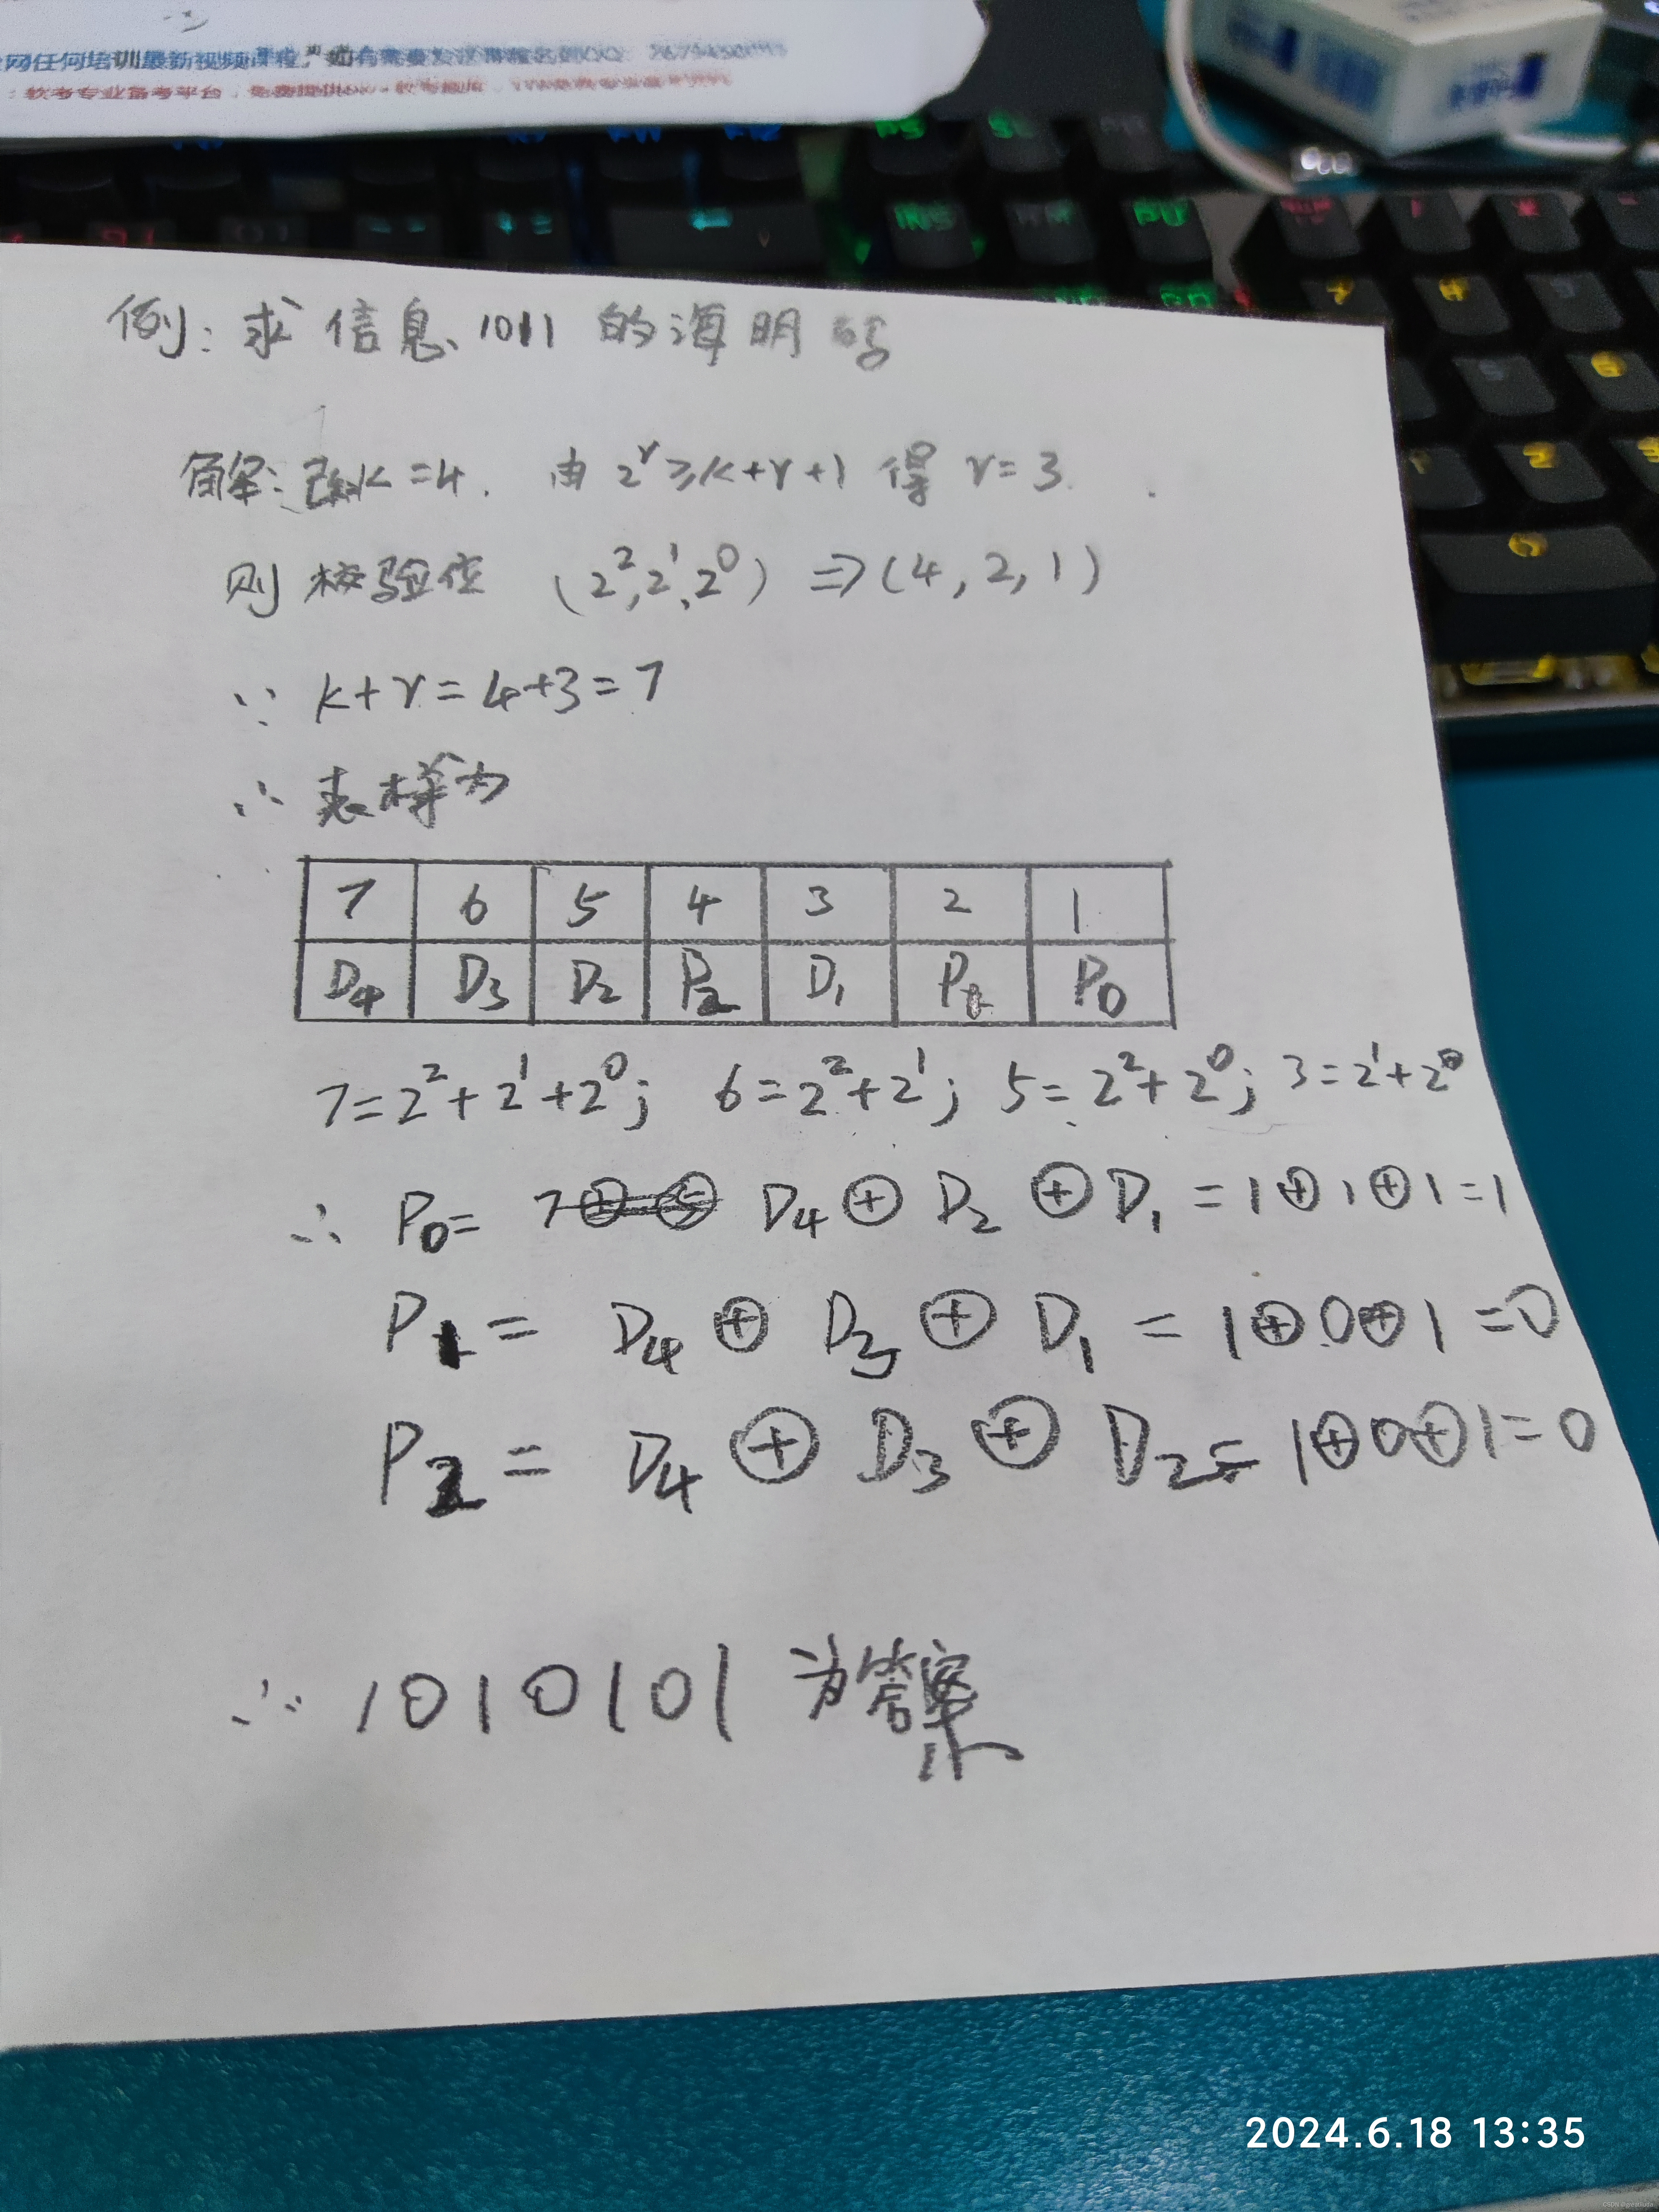 网任何培训最新视频课程，
软考专业备考平台，免费提供
INS
PU
例：求信息1011的海明码
解：设k=4. 由 2^r≥k+r+1 得 r=3.
则校验位 (2^2,2^1,2^0) ⇒(4,2,1)
∵ k+r=4+3=7
∴ 表样为
7 6 5 4 3 2 1
D4 D3 D2 P2 D1 P1 P0
7=2^2+2^1+2^0; 6=2^2+2^1; 5=2^2+2^0; 3=2^1+2^0
∴ P0= D4⊕D2⊕D1=1⊕1⊕1=1
P1= D4⊕D3⊕D1=1⊕0⊕1=0
P2= D4⊕D3⊕D2=1⊕0⊕1=0
∴ 1010101 为答案
2024.6.18 13:35